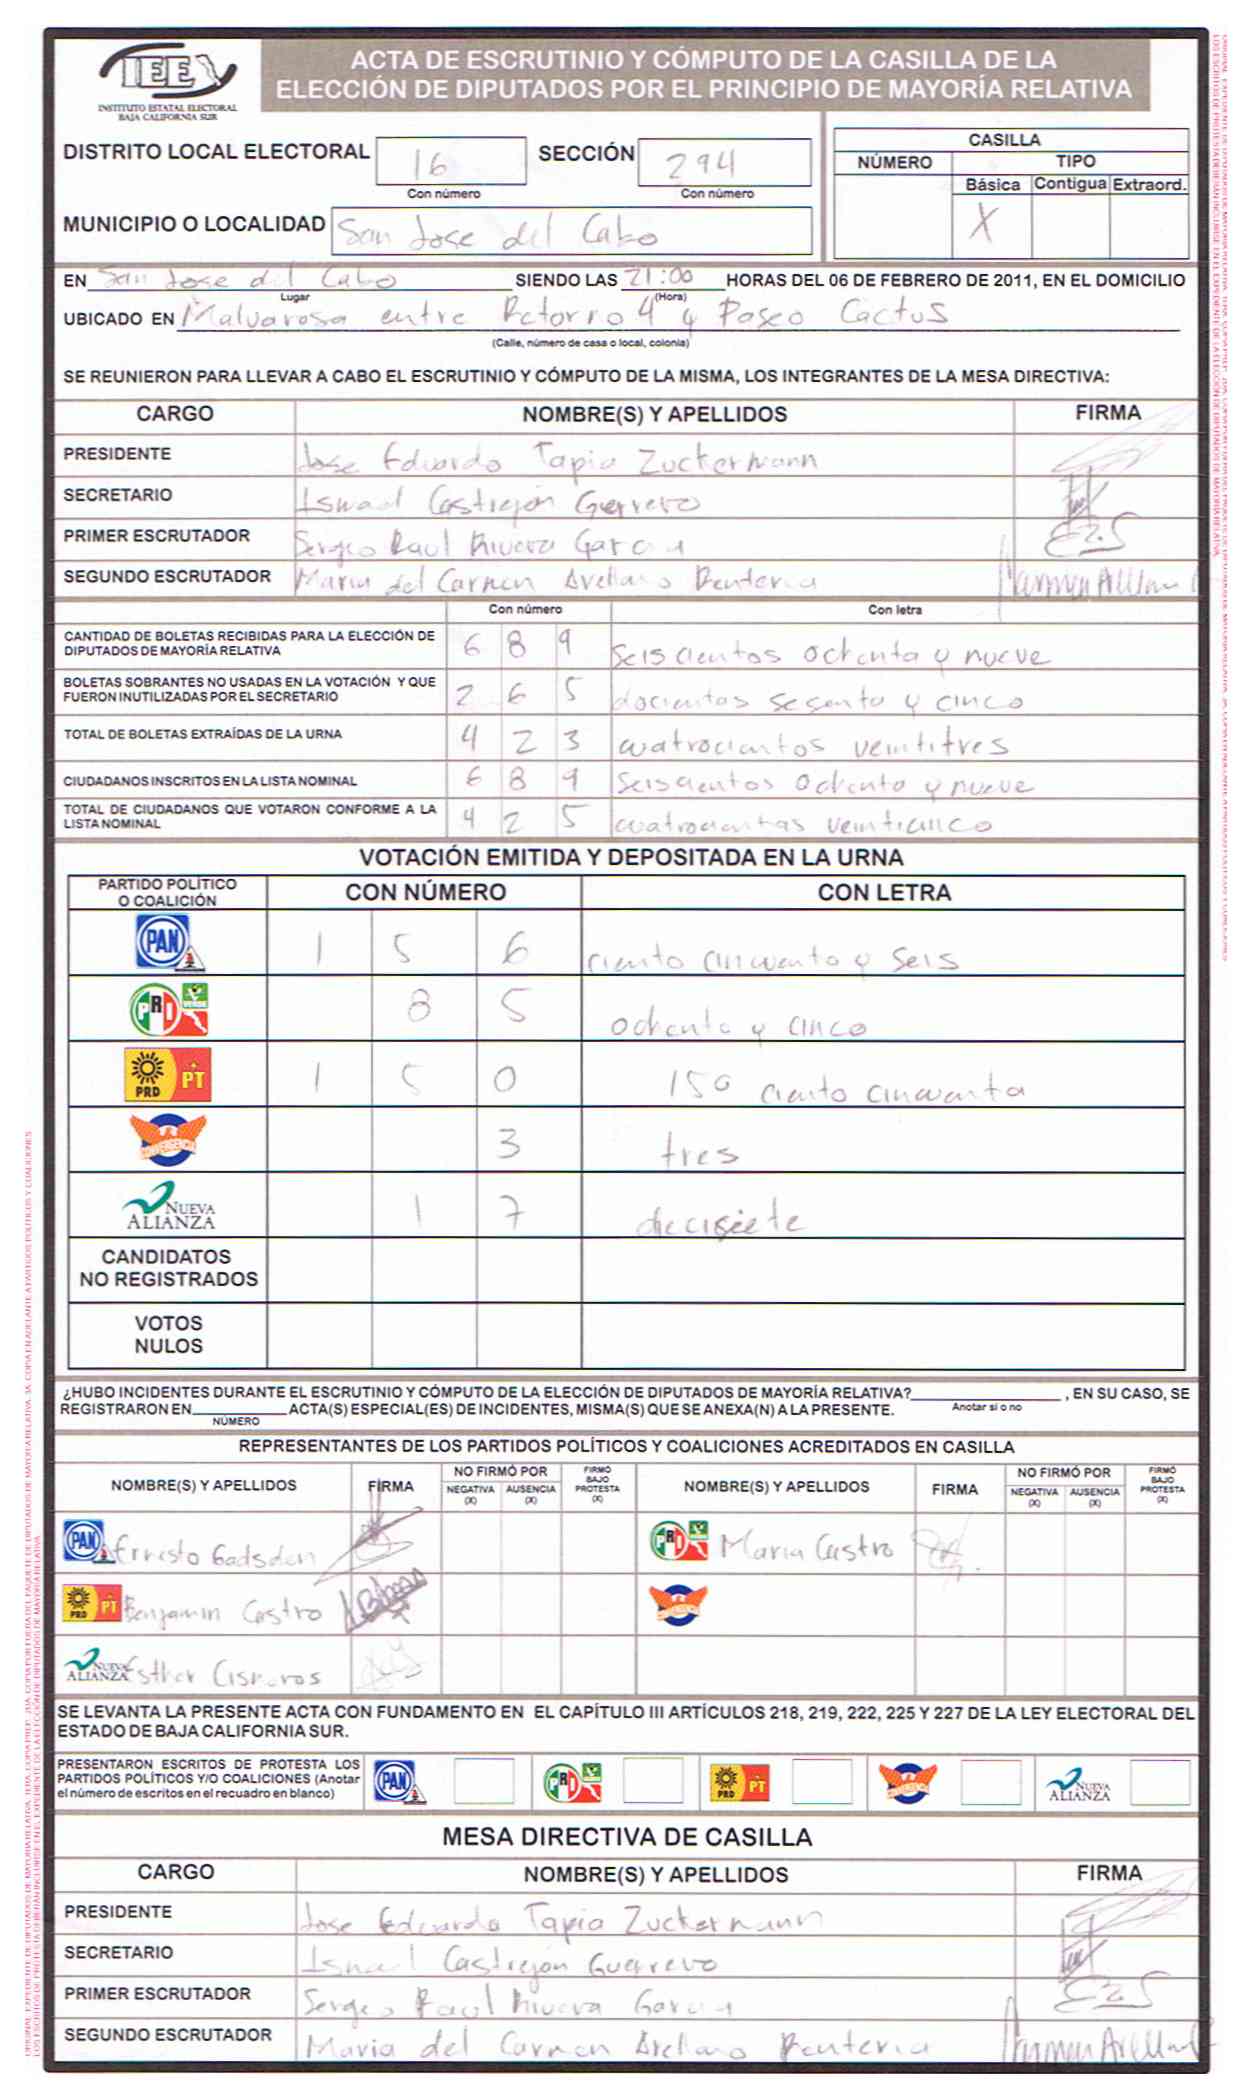 IEEX
INSTITUTO ESTATAL ELECTORAL
BAJA CALIFORNIA SUR
ACTA DE ESCRUTINIO Y CÓMPUTO DE LA CASILLA DE LA
ELECCIÓN DE DIPUTADOS POR EL PRINCIPIO DE MAYORÍA RELATIVA
DISTRITO LOCAL ELECTORAL 16 SECCIÓN 294
Con número Con número
CASILLA
NÚMERO TIPO
Básica Contigua Extraord.
X
MUNICIPIO O LOCALIDAD San Jose del Cabo
EN San Jose del Cabo SIENDO LAS 21:00 HORAS DEL 06 DE FEBRERO DE 2011, EN EL DOMICILIO
Lugar (Hora)
UBICADO EN Malvarosa entre Retorno 4 y Paseo Cactus
(Calle, número de casa o local, colonia)
SE REUNIERON PARA LLEVAR A CABO EL ESCRUTINIO Y CÓMPUTO DE LA MISMA, LOS INTEGRANTES DE LA MESA DIRECTIVA:
CARGO NOMBRE(S) Y APELLIDOS FIRMA
PRESIDENTE Jose Eduardo Tapia Zuckermann
SECRETARIO Ismael Castrejón Guerrero
PRIMER ESCRUTADOR Sergio Raul Rivera Garcia
SEGUNDO ESCRUTADOR Maria del Carmen Arellano Renteria
Con número Con letra
CANTIDAD DE BOLETAS RECIBIDAS PARA LA ELECCIÓN DE
DIPUTADOS DE MAYORÍA RELATIVA 6 8 9 seiscientos ochenta y nueve
BOLETAS SOBRANTES NO USADAS EN LA VOTACIÓN Y QUE
FUERON INUTILIZADAS POR EL SECRETARIO 2 6 5 docientas sesenta y cinco
TOTAL DE BOLETAS EXTRAÍDAS DE LA URNA 4 2 3 cuatrocientos veintitres
CIUDADANOS INSCRITOS EN LA LISTA NOMINAL 6 8 9 Seiscientos Ochenta y nueve
TOTAL DE CIUDADANOS QUE VOTARON CONFORME A LA
LISTA NOMINAL 4 2 5 cuatrocientas veinticinco
VOTACIÓN EMITIDA Y DEPOSITADA EN LA URNA
PARTIDO POLÍTICO
O COALICIÓN CON NÚMERO CON LETRA
PAN 1 5 6 ciento cincuenta y seis
PRI VERDE 8 5 ochenta y cinco
PRD PT 1 5 0 150 ciento cincuenta
CONVERGENCIA 3 tres
NUEVA ALIANZA 1 7 diecisiete
CANDIDATOS
NO REGISTRADOS
VOTOS
NULOS
¿HUBO INCIDENTES DURANTE EL ESCRUTINIO Y CÓMPUTO DE LA ELECCIÓN DE DIPUTADOS DE MAYORÍA RELATIVA? , EN SU CASO, SE
REGISTRARON EN ACTA(S) ESPECIAL(ES) DE INCIDENTES, MISMA(S) QUE SE ANEXA(N) A LA PRESENTE. Anotar si o no
NÚMERO
REPRESENTANTES DE LOS PARTIDOS POLÍTICOS Y COALICIONES ACREDITADOS EN CASILLA
NOMBRE(S) Y APELLIDOS FIRMA NO FIRMÓ POR NEGATIVA (X) AUSENCIA (X) FIRMÓ BAJO PROTESTA (X) NOMBRE(S) Y APELLIDOS FIRMA NO FIRMÓ POR NEGATIVA (X) AUSENCIA (X) FIRMÓ BAJO PROTESTA (X)
PAN Ernesto Gadsden PRI Maria Castro
PRD PT Benjamin Castro
NUEVA ALIANZA Esther Cisneros
SE LEVANTA LA PRESENTE ACTA CON FUNDAMENTO EN EL CAPÍTULO III ARTÍCULOS 218, 219, 222, 225 Y 227 DE LA LEY ELECTORAL DEL
ESTADO DE BAJA CALIFORNIA SUR.
PRESENTARON ESCRITOS DE PROTESTA LOS
PARTIDOS POLÍTICOS Y/O COALICIONES (Anotar
el número de escritos en el recuadro en blanco)
PAN PRI PRD PT NUEVA ALIANZA
MESA DIRECTIVA DE CASILLA
CARGO NOMBRE(S) Y APELLIDOS FIRMA
PRESIDENTE Jose Eduardo Tapia Zuckermann
SECRETARIO Ismael Castrejón Guerrero
PRIMER ESCRUTADOR Sergio Raul Rivera Garcia
SEGUNDO ESCRUTADOR Maria del Carmen Arellano Renteria